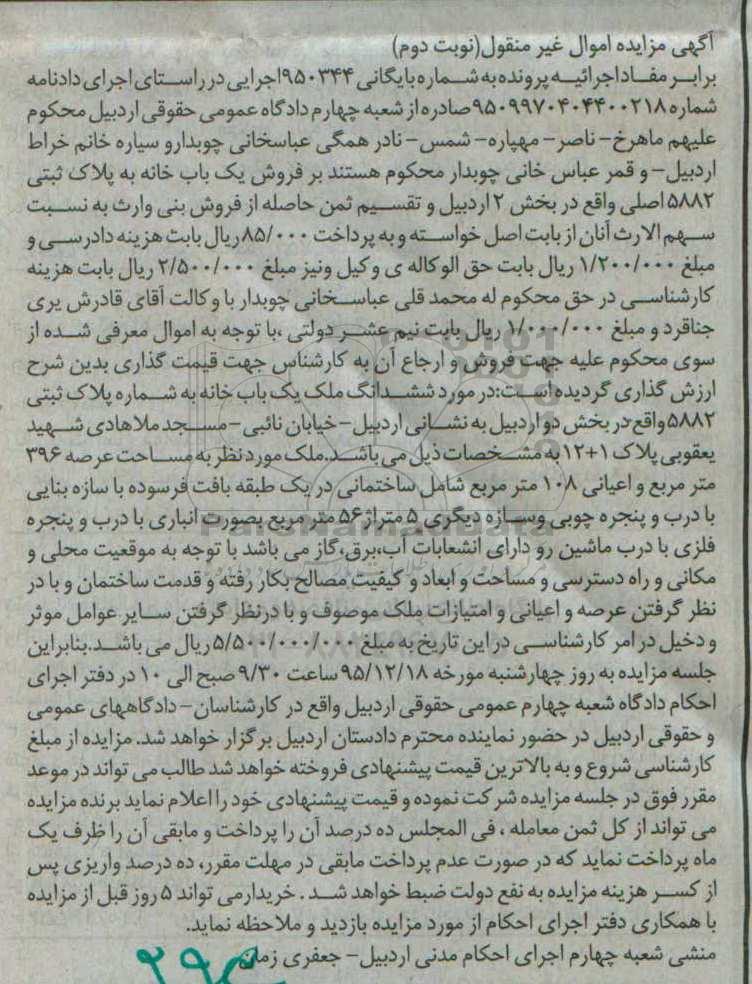 آگهی مزایده اموال غیر منقول(نوبت دوم)
برابر مفاد اجرائیه پرونده به شماره بایگانی ۹۵۰۳۴۴اجرایی در راستای اجرای دادنامه
شماره ۹۵۰۹۹۷۰۴۰۴۴۰۰۲۱۸صادره از شعبه چهارم دادگاه عمومی حقوقی اردبیل محکوم
علیهم ماهرخ- ناصر- مهپاره- شمس- نادر همگی عباسخانی چوبدارو سیاره خانم خراط
اردبیل- و قمر عباس خانی چوبدار محکوم هستند بر فروش یک باب خانه به پلاک ثبتی
۵۸۸۲اصلی واقع در بخش ۲اردبیل و تقسیم ثمن حاصله از فروش بنی وارث به نسبت
سهم الارث آنان از بابت اصل خواسته و به پرداخت ۸۵/۰۰۰ریال بابت هزینه دادرسی و
مبلغ ۱/۲۰۰/۰۰۰ ریال بابت حق الوکاله ی وکیل ونیز مبلغ ۲/۵۰۰/۰۰۰ ریال بابت هزینه
کارشناسی در حق محکوم له محمد قلی عباسخانی چوبدار با وکالت آقای قادرش یری
جناقرد و مبلغ ۱/۰۰۰/۰۰۰ ریال بابت نیم عشر دولتی ،با توجه به اموال معرفی شده از
سوی محکوم علیه جهت فروش و ارجاع آن به کارشناس جهت قیمت گذاری بدین شرح
ارزش گذاری گردیده است:در مورد ششدانگ ملک یک باب خانه به شماره پلاک ثبتی
۵۸۸۲واقع در بخش دو اردبیل به نشانی اردبیل- خیابان نائبی- مسجد ملاهادی شهید
یعقوبی پلاک ۱+۱۲به مشخصات ذیل می باشد.ملک مورد نظر به مساحت عرصه ۳۹۶
متر مربع و اعیانی ۱۰۸ متر مربع شامل ساختمانی در یک طبقه بافت فرسوده با سازه بنایی
با درب و پنجره چوبی وسازه دیگری ۵ متراژ۵۶ متر مربع بصورت انباری با درب و پنجره
فلزی با درب ماشین رو دارای انشعابات آب،برق،گاز می باشد با توجه به موقعیت محلی و
مکانی و راه دسترسی و مساحت و ابعاد و کیفیت مصالح بکار رفته و قدمت ساختمان و با در
نظر گرفتن عرصه و اعیانی و امتیازات ملک موصوف و با درنظر گرفتن سایر عوامل موثر
و دخیل در امر کارشناسی در این تاریخ به مبلغ ۵/۵۰۰/۰۰۰/۰۰۰ریال می باشد.بنابراین
جلسه مزایده به روز چهارشنبه مورخه ۹۵/۱۲/۱۸ساعت ۹/۳۰صبح الی ۱۰ در دفتر اجرای
احکام دادگاه شعبه چهارم عمومی حقوقی اردبیل واقع در کارشناسان- دادگاههای عمومی
و حقوقی اردبیل در حضور نماینده محترم دادستان اردبیل برگزار خواهد شد. مزایده از مبلغ
کارشناسی شروع و به بالاترین قیمت پیشنهادی فروخته خواهد شد طالب می تواند در موعد
مقرر فوق در جلسه مزایده شرکت نموده و قیمت پیشنهادی خود را اعلام نماید برنده مزایده
می تواند از کل ثمن معامله ، فی المجلس ده درصد آن را پرداخت و مابقی آن را ظرف یک
ماه پرداخت نماید که در صورت عدم پرداخت مابقی در مهلت مقرر، ده درصد واریزی پس
از کسر هزینه مزایده به نفع دولت ضبط خواهد شد . خریدارمی تواند ۵ روز قبل از مزایده
با همکاری دفتر اجرای احکام از مورد مزایده بازدید و ملاحظه نماید.
منشی شعبه چهارم اجرای احکام مدنی اردبیل- جعفری زمان